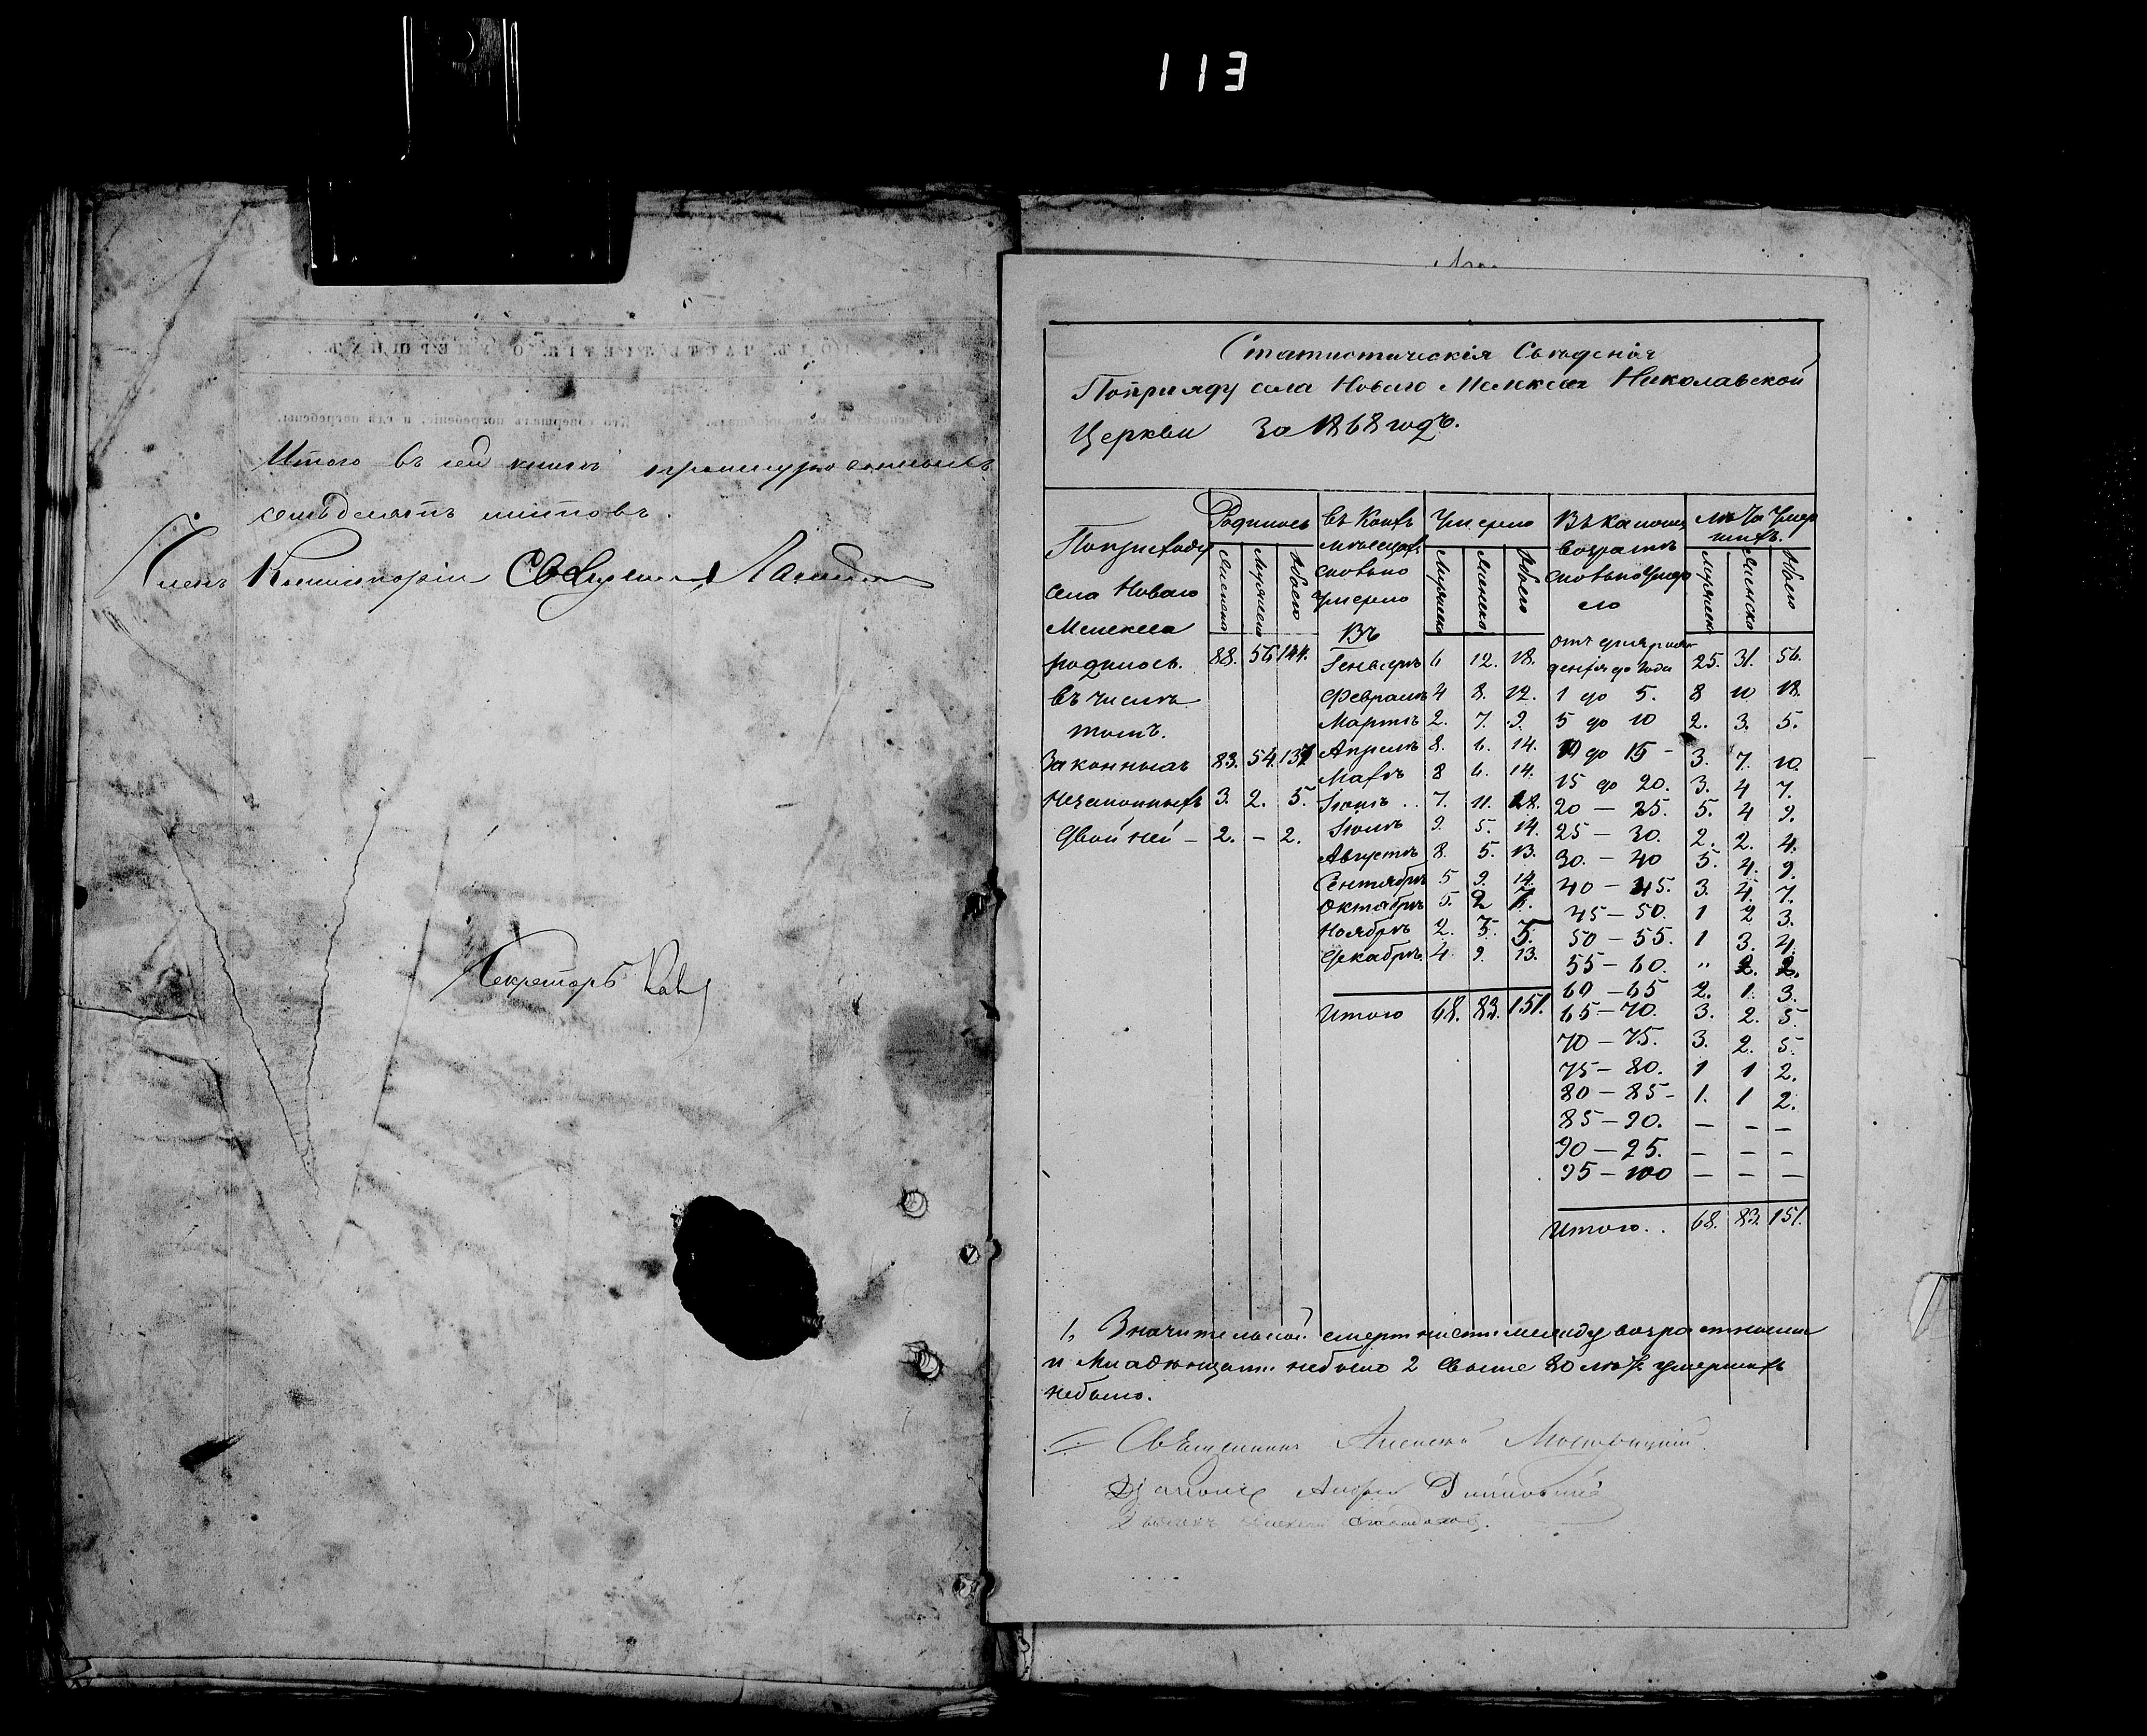 113
Итого въ сей книгѣ пронумурованныхъ
семьдесятъ листовъ.
Членъ Консисторіи Священникъ
Секретарь
Статистическія Свѣденія
По приходу села Новаго Мелекеса Николавской
Церкви за 1868 годъ.
По приходу села Новаго Мелекеса
Родилось
Женска
Мужеска
Обоего
въ Коихъ мѣсяцахъ сколько умерло
Умерло
Мужеска
Женска
Обоего
Въ какомъ возрастѣ сколько умерло
лѣта умершихъ.
Мужеска
Женска
Обоего
родилось. 88. 56 144.
въ числѣ
томъ.
Законныхъ 83. 54. 137
Незаконныхъ 3. 2. 5.
Двойней — 2. — 2.
Въ
Генварѣ 6 12. 18.
Февралѣ 4 8. 12.
Мартѣ 2. 7. 9.
Апрѣлѣ 8. 6. 14.
Маѣ 8 6. 14.
Іюнѣ .. 7. 11. 18.
Іюлѣ 9. 5. 14.
Августѣ 8. 5. 13.
Сентябрѣ 5 9. 14.
Октябрѣ 5. 2 7.
Ноябрѣ 2. 3. 5.
Декабрѣ 4. 9. 13.
Итого 68. 83. 151.
отъ дня рож-
денія до года 25. 31. 56.
1 до 5. 8 10 18.
5 до 10 2. 3. 5.
10 до 15 - 3. 7. 10.
15 до 20. 3. 4 7.
20 — 25. 5. 4 9.
25 — 30. 2. 2. 4.
30. — 40 5. 4. 9.
40 — 45. 3. 4. 7.
45 — 50. 1 2 3.
50 — 55. 1 3. 4.
55 — 60. " 2. 2.
60 — 65 2. 1. 3.
65 — 70. 3. 2. 5.
70 — 75. 3. 2. 5.
75 — 80. 1 1 2.
80 — 85 - 1. 1 2.
85 — 90. — — —
90 — 95. — — —
95 — 100 — — —
Итого.. 68. 83. 151.
1, Значительной смертности между возрастными
и младенцами небыло 2 Свыше 80 лѣтъ умершихъ
небыло.
Священникъ Алексей
Діаконъ Андрей